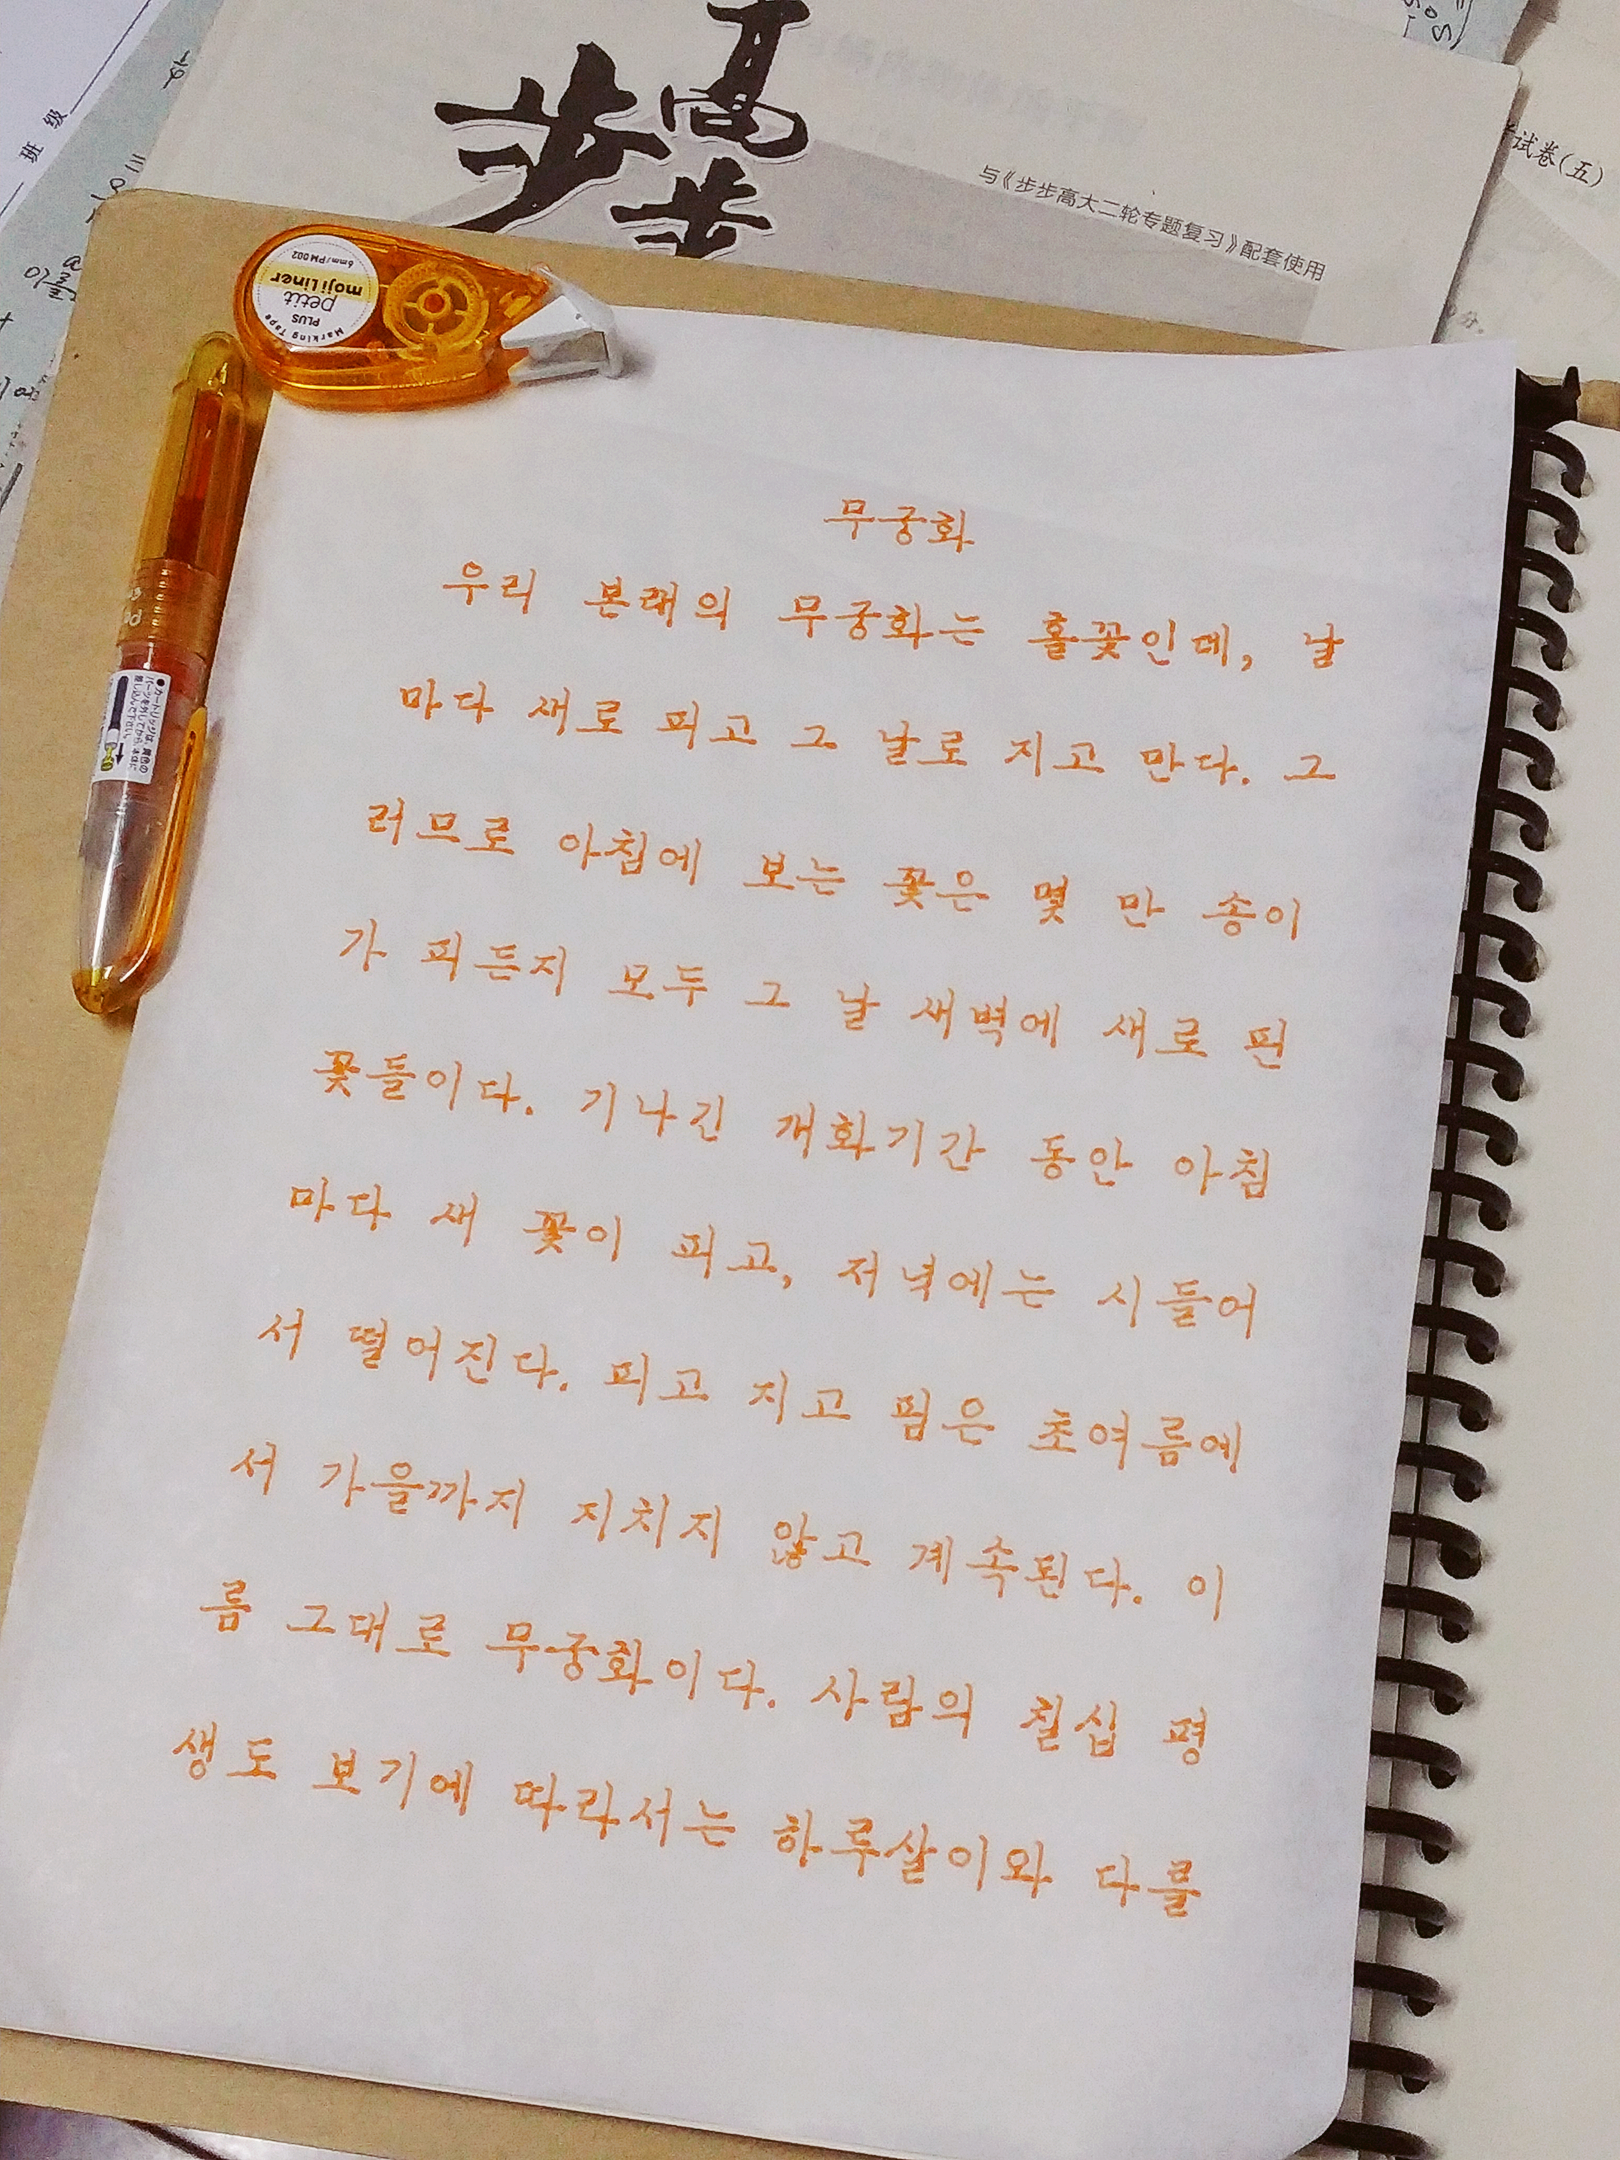 步步高
与《步步高大二轮专题复习》配套使用
试卷(五)
班级
PLUS
petit
moji Liner
6mm/PM002
Marking Tape
무궁화
우리 본래의 무궁화는 홑꽃인데, 날
마다 새로 피고 그 날로 지고 만다. 그
러므로 아침에 보는 꽃은 몇 만 송이
가 피든지 모두 그 날 새벽에 새로 핀
꽃들이다. 기나긴 개화기간 동안 아침
마다 새 꽃이 피고, 저녁에는 시들어
서 떨어진다. 피고 지고 핌은 초여름에
서 가을까지 지치지 않고 계속된다. 이
름 그대로 무궁화이다. 사람의 칠십 평
생도 보기에 따라서는 하루살이와 다를